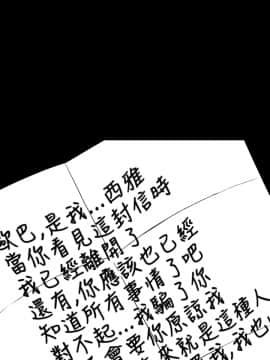 歐巴，是我...西雅
當你看見這封信時
我已經離開了
還有，你應該也已經
知道所有事情了吧
對不起...我騙了你
會要你原諒我
來就是這種人
我也